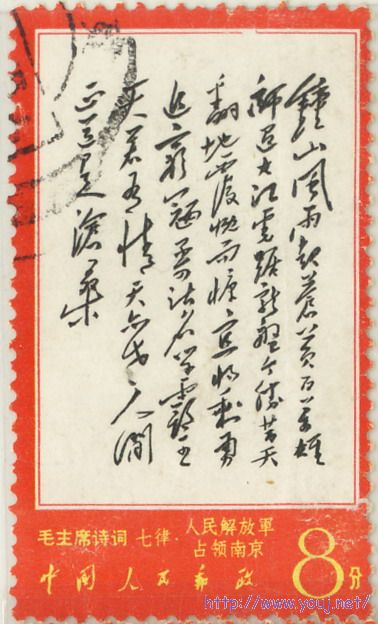 鐘山風雨起蒼黃百万雄
師过大江虎踞龍盤今勝昔天
翻地覆慨而慷宜将剩勇
追窮寇不可沽名学霸王
天若有情天亦老人間
正道是滄桑
毛主席诗词 七律·人民解放軍
占领南京
8分
中国人民邮政
http://www.youj.net/